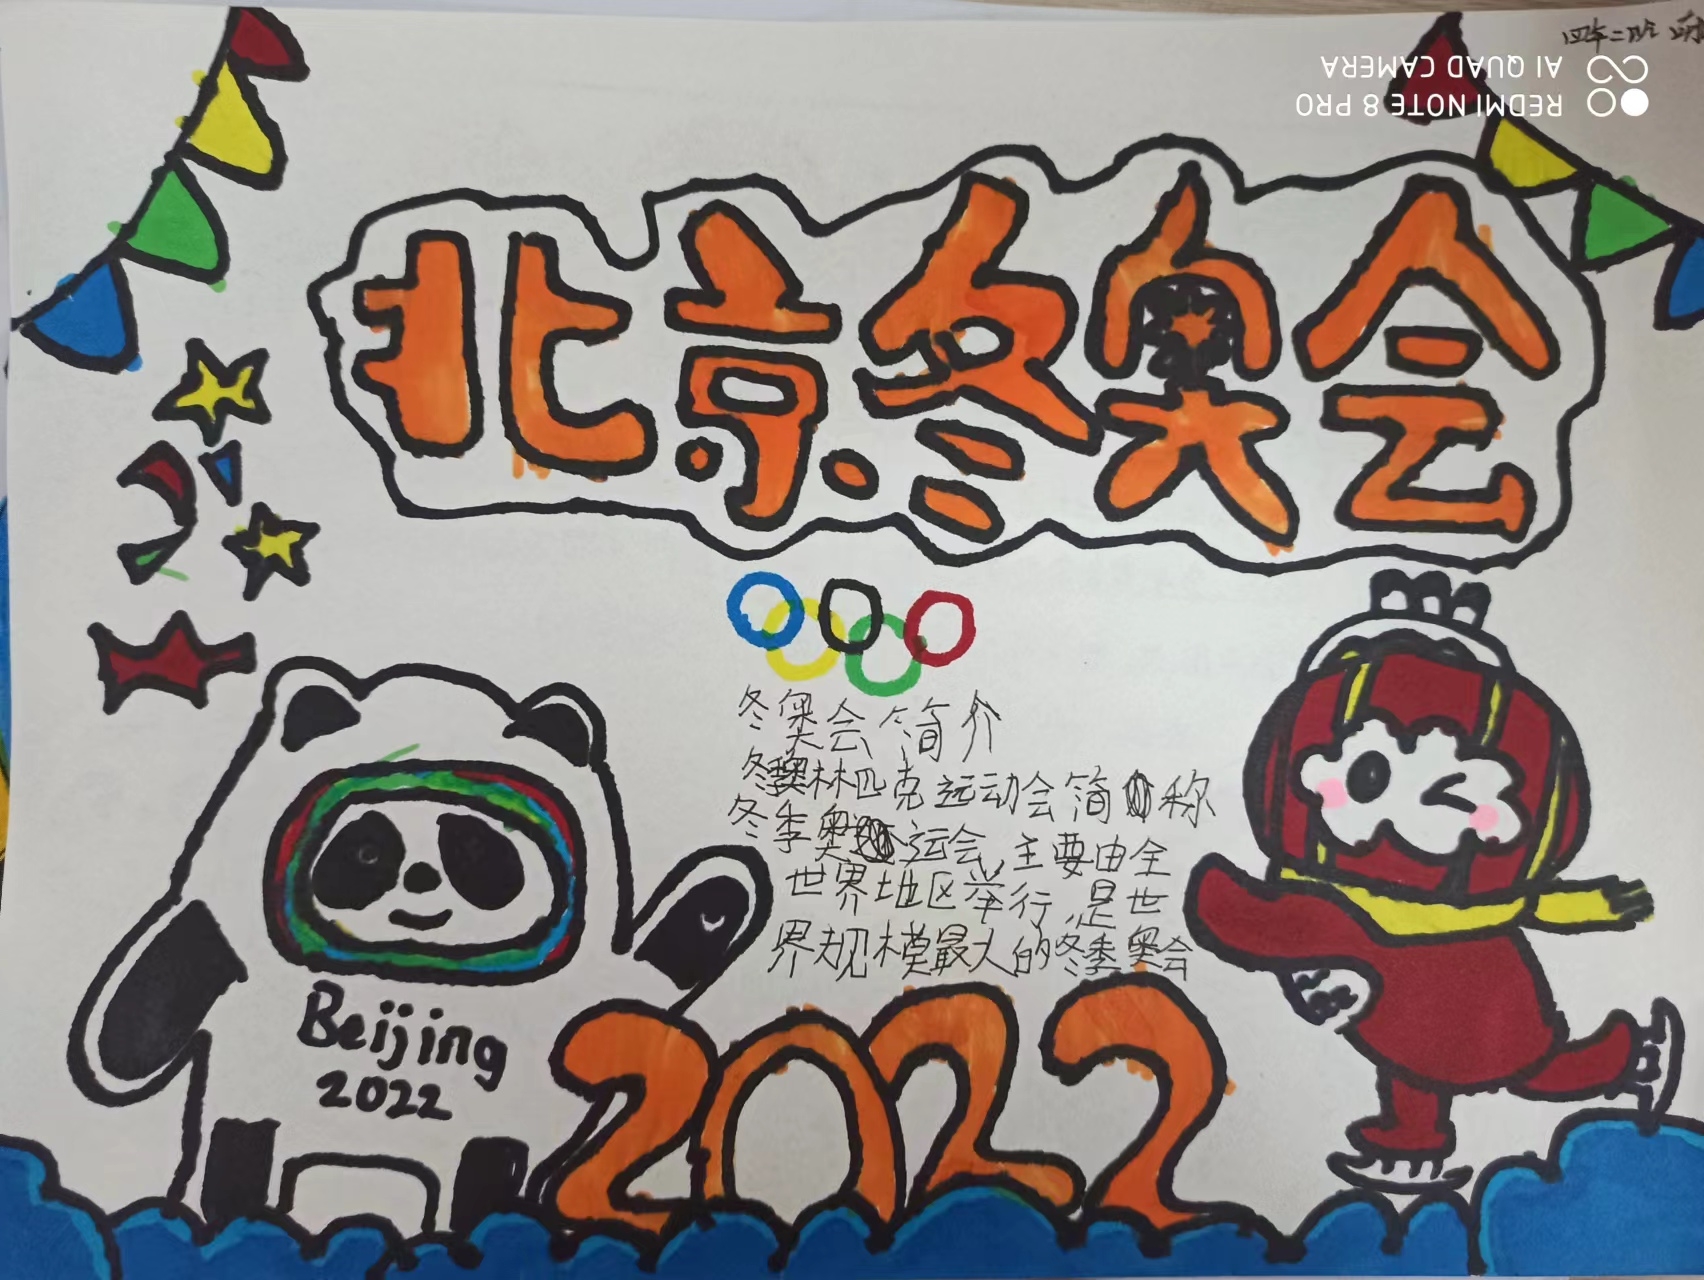 四年二班
REDMI NOTE 8 PRO
AI QUAD CAMERA
北京冬奥会
冬奥会简介
冬奥林匹克运动会简称
冬季奥运会,主要由全
世界地区举行,是世
界规模最大的冬季奥会
Beijing
2022
2022